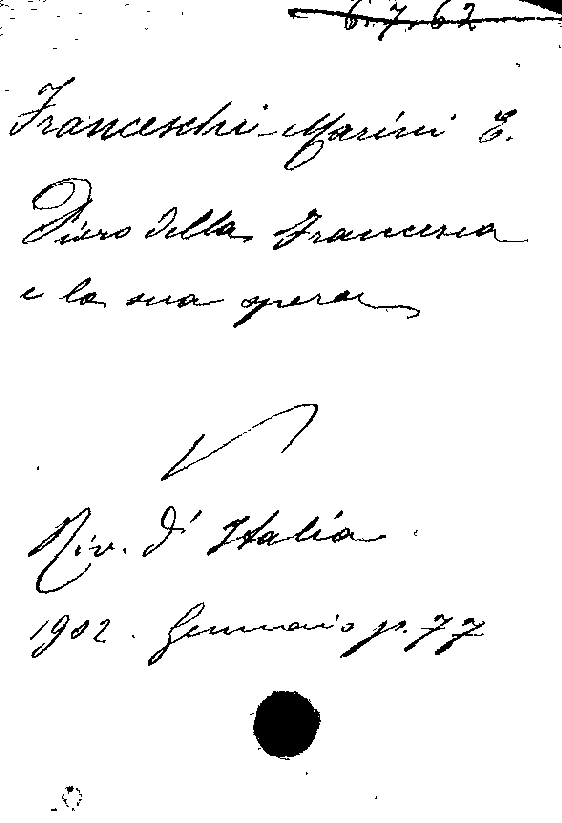 6.7.62
Franceschi-Marini E.
Piero della Francesca
e la sua opera
Riv. d'Italia
1902. Gennaio p. 77